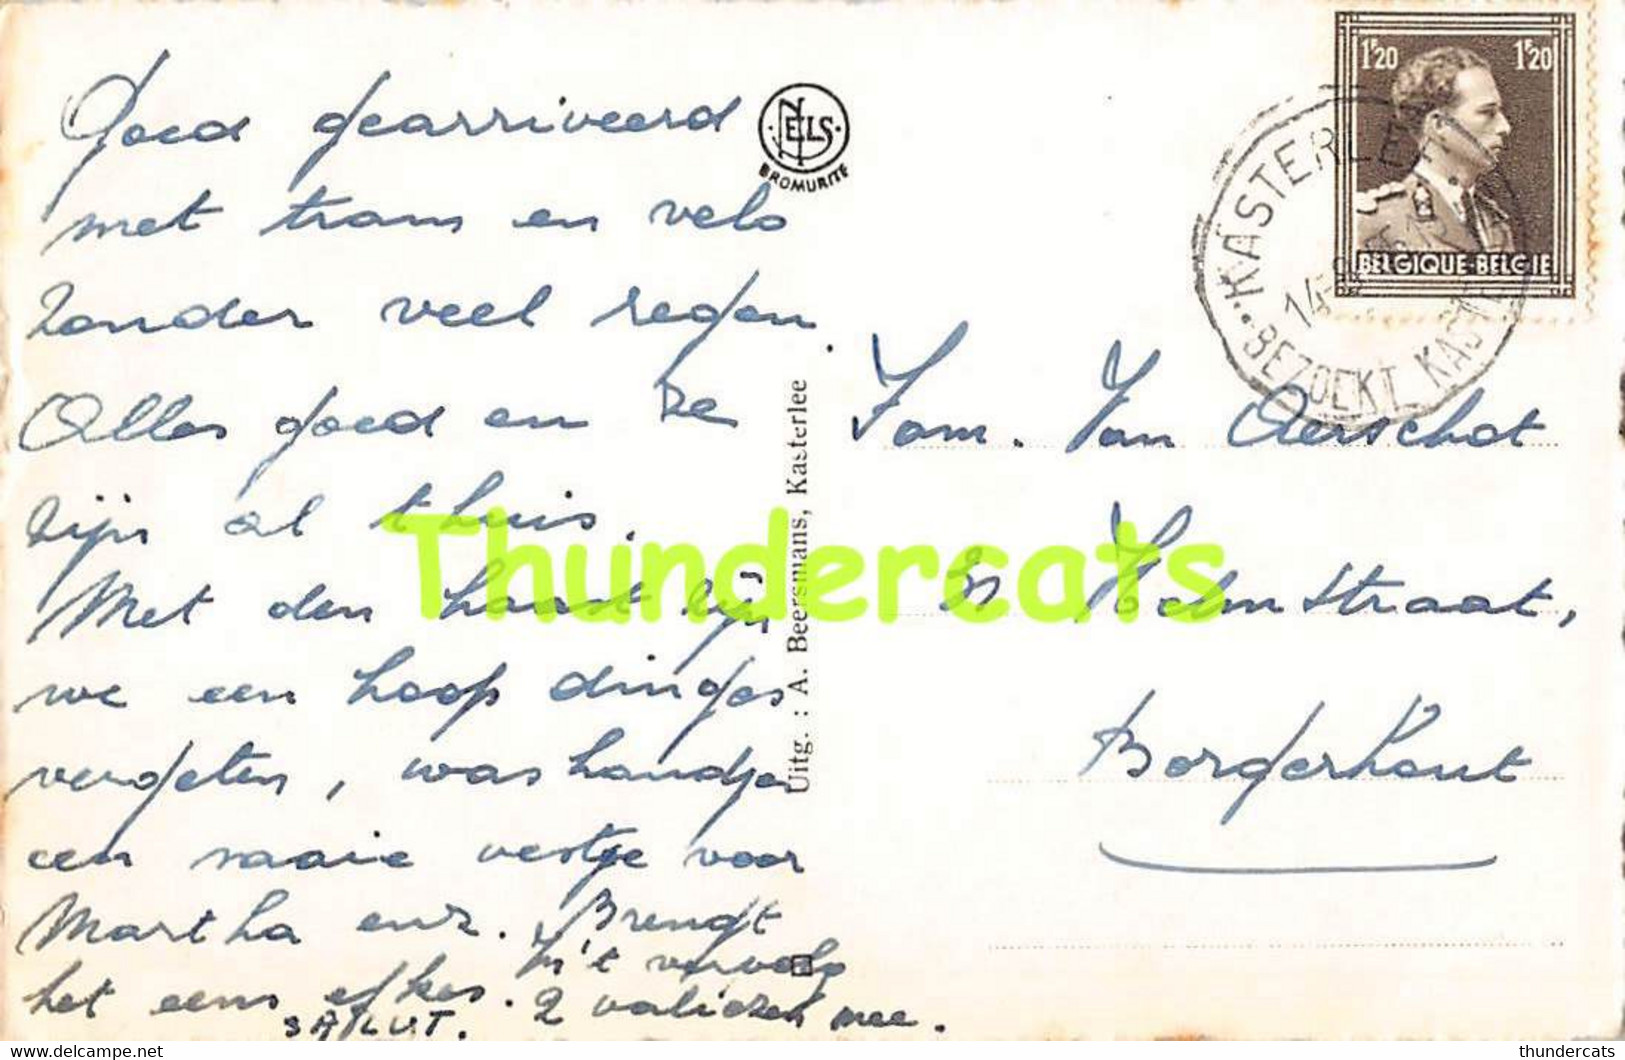 Goed gearriveerd
met tram en velo
zonder veel regen.
Alles goed en ze
zijn al thuis.
Met den haast zijn
we een hoop dinges
vergeten, washandje
een saaie vestje voor
Martha enz. Brengt
het eens efkes. In 't vervolg
2 valiezen mee.
SALUT.
NELS
BROMURITE
Uitg. : A. Beersmans, Kasterlee
1F20 1F20
BELGIQUE-BELGIE
KASTERLEE
14
BEZOEKT KAST
Fam. Van Aerschot
Helmstraat,
Borgerhout
Thundercats
delcampe.net
thundercats